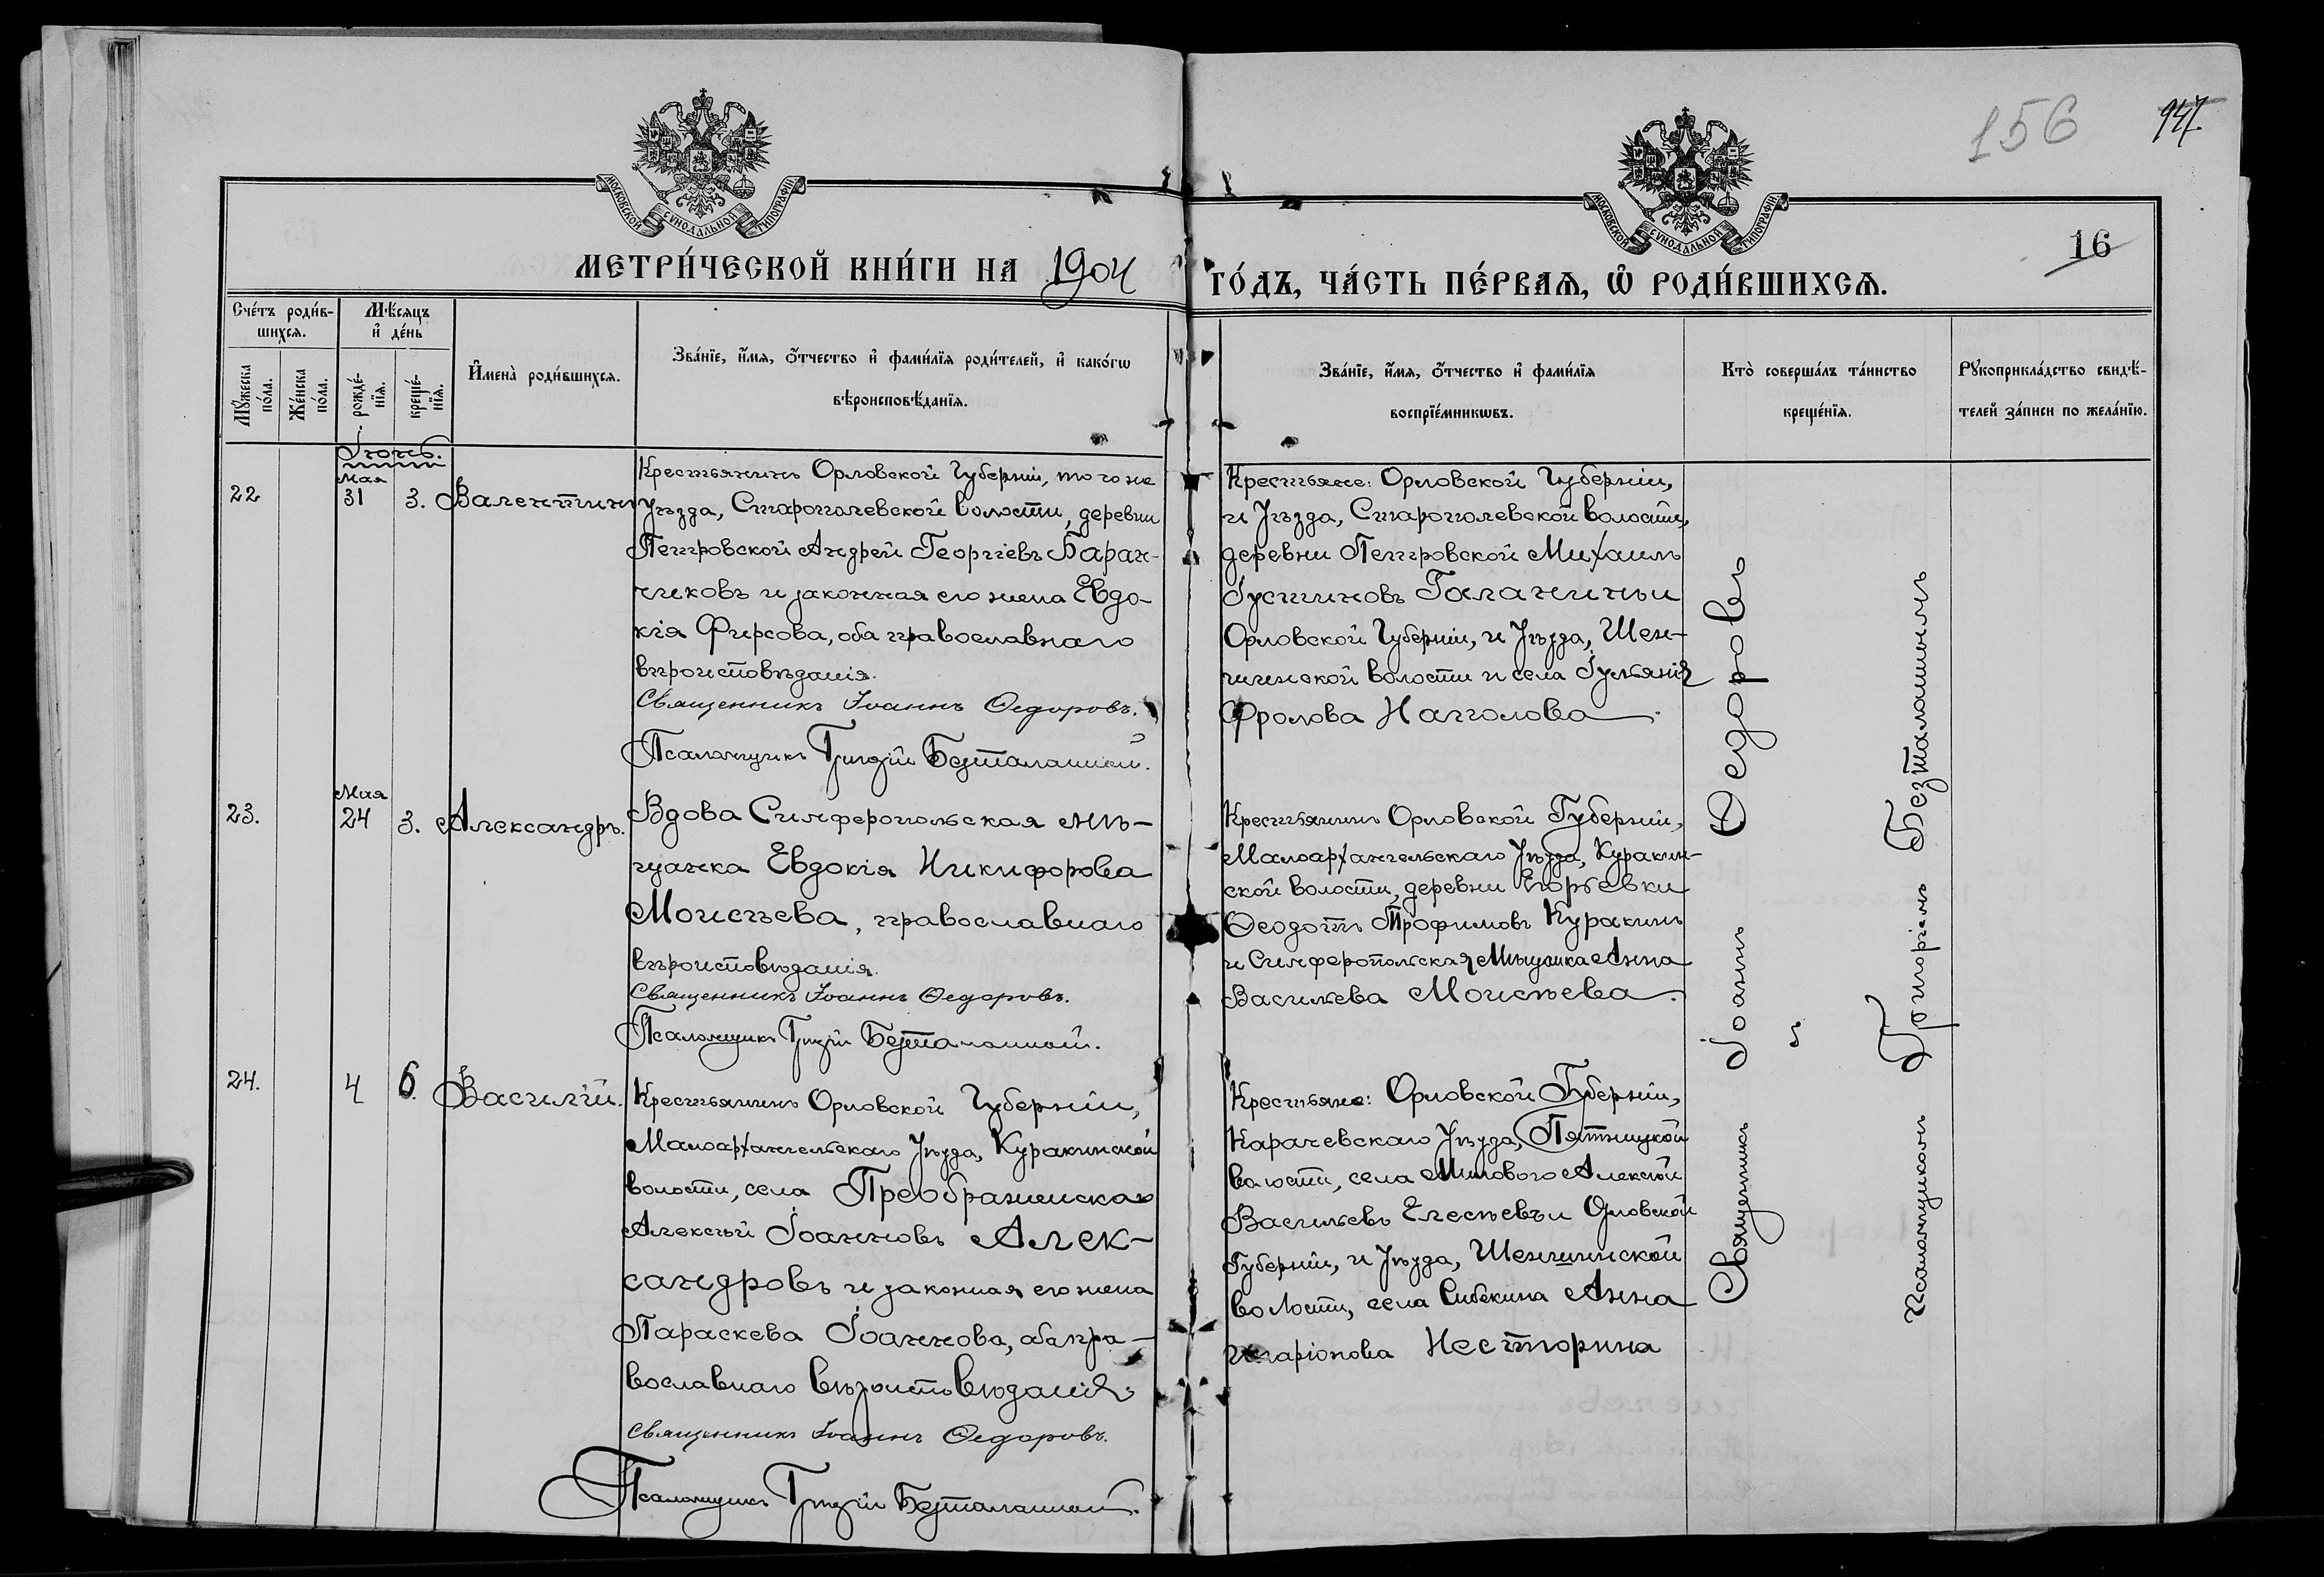 156
947
МОСКОВСКОЙ СѴНОДАЛЬНОЙ ТИПОГРАФІИ
МОСКОВСКОЙ СѴНОДАЛЬНОЙ ТИПОГРАФІИ
16
МЕТРИ́ЧЕСКОЙ КНИ́ГИ НА 1904 ГО́ДЪ, ЧА́СТЬ ПЕ́РВАѦ, Ѽ РОДИ́ВШИХСѦ.
Сче́тъ роди́в-
шихсѧ.
Мꙋ́жеска
по́ла.
Же́нска
по́ла.
Мѣ́сѧцъ
и҆ де́нь
рожде́-
нїѧ.
креще́-
нїѧ.
И҆мена̀ роди́вшихсѧ.
Зва́нїе, и҆́мѧ, ѻ҆́тчество и҆ фами́лїѧ роди́телей, и҆ како́гѡ
вѣроисповѣ́данїѧ.
Зва́нїе, и҆́мѧ, ѻ҆́тчество и҆ фами́лїѧ
воспрїе́мникѡвъ.
Кто̀ соверша́лъ та́инство
креще́нїѧ.
Рꙋкоприкла́дство свидѣ́-
телей за́писи по жела́нїю.
Іюнь.
22
Мая
31
3.
Валентинъ
Крестьянинъ Орловской Губерніи, того же
Уѣзда, Старополевской волости, деревни
Петровской Андрей Георгіевъ Баран-
чиковъ и законная его жена Евдо-
кія Фирсова, оба православнаго
вѣроисповѣданія.
Священникъ Іоаннъ Ѳедоровъ.
Псаломщикъ Григорій Безталанный.
Крестьяне: Орловской Губерніи,
и Уѣзда, Старополевской волости,
деревни Петровской Михаилъ
Іустиновъ Галанинъ и
Орловской Губерніи, и Уѣзда, Шен-
шинской волости и села Іуліанія
Фролова Наголова
23.
Мая
24
3.
Александръ.
Вдова Симферопольская мѣ-
щанка Евдокія Никифорова
Моисѣева, православнаго
вѣроисповѣданія.
Священникъ Іоаннъ Ѳедоровъ.
Псаломщикъ Григорій Безталанный.
Крестьянинъ Орловской Губерніи,
Малоархангельскаго Уѣзда, Куракин-
ской волости, деревни Егорьевки
Ѳеодотъ Трофимовъ Куракинъ
и Симферопольская Мѣщанка Анна
Васильева Моисѣева.
24.
4
6.
Василій.
Крестьянинъ Орловской Губерніи,
Малоархангельскаго Уѣзда, Куракинской
волости, села Преображенскаго
Алексѣй Іоанновъ Алек-
сандровъ и законная его жена
Параскева Іоаннова, оба пра-
вославнаго вѣроисповѣданія.
Священникъ Іоаннъ Ѳедоровъ.
Псаломщикъ Григорій Безталанный.
Крестьяне: Орловской Губерніи,
Карачевскаго Уѣзда, Пятницкой
волости, села Милового Алексѣй
Васильевъ Елесѣевъ и Орловской
Губерніи, и Уѣзда, Шеншинской
волости, села Анна
Иларіонова Несторина
Священникъ Іоаннъ Ѳедоровъ
съ
Псаломщикомъ Григоріемъ Безталаннымъ